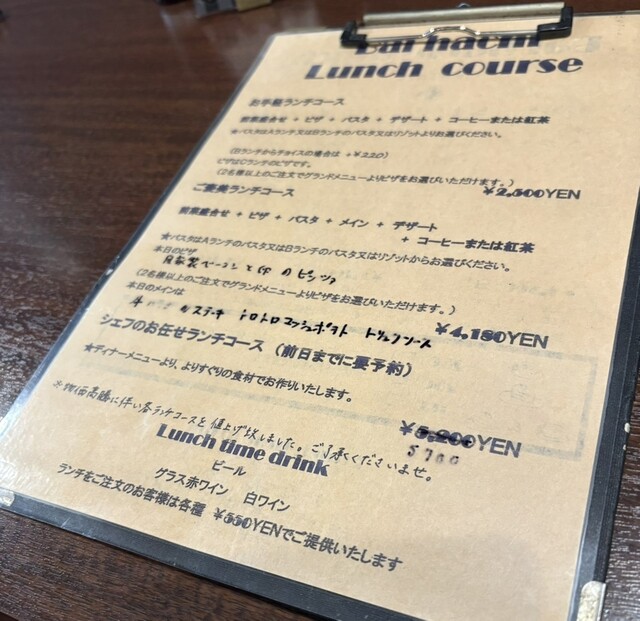 Bar hachi
Lunch course
お手軽ランチコース
前菜盛合せ + ピザ + パスタ + デザート + コーヒーまたは紅茶
★パスタはAランチ又はBランチのパスタ又はリゾットよりお選びください。
(Bランチからチョイスの場合は +￥220)
ピザはCランチのピザです。
(2名様以上のご注文でグランドメニューよりピザをお選びいただけます。)
￥2,500YEN
ご褒美ランチコース
前菜盛合せ + ピザ + パスタ + メイン + デザート
+ コーヒーまたは紅茶
★パスタはAランチのパスタ又はBランチのパスタ又はリゾットからお選びください。
本日のピザ
自家製ベーコンと卵のピッツァ
(2名様以上のご注文でグランドメニューよりピザをお選びいただけます。)
本日のメインは
牛 ステーキ トロトロマッシュポテト トリュフソース
￥4,180YEN
シェフのお任せランチコース (前日までに要予約)
★ディナーメニューより、よりすぐりの食材でお作りいたします。
￥5,200YEN
5700
※物価高騰に伴い各ランチコースを値上げ致しました。ご了承くださいませ。
Lunch time drink
ビール
グラス赤ワイン 白ワイン
ランチをご注文のお客様は各種 ￥550YENでご提供いたします